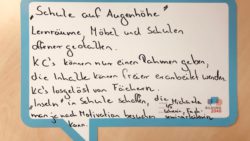 „Schule auf Augenhöhe"
Lernräume, Möbel und Schulen
offener gestalten.
KC's können nur einen Rahmen geben,
die Inhalte können freier erarbeitet werden
KC's losgelöst von Fächern.
„Inseln" in Schule schaffen, die
man je nach Motivation besuchen
kann.